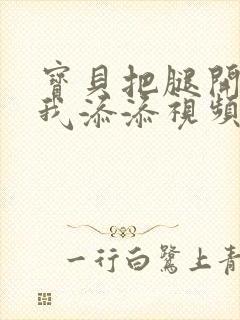 寶貝把腿開
我添添視頻
一行白鷺上青